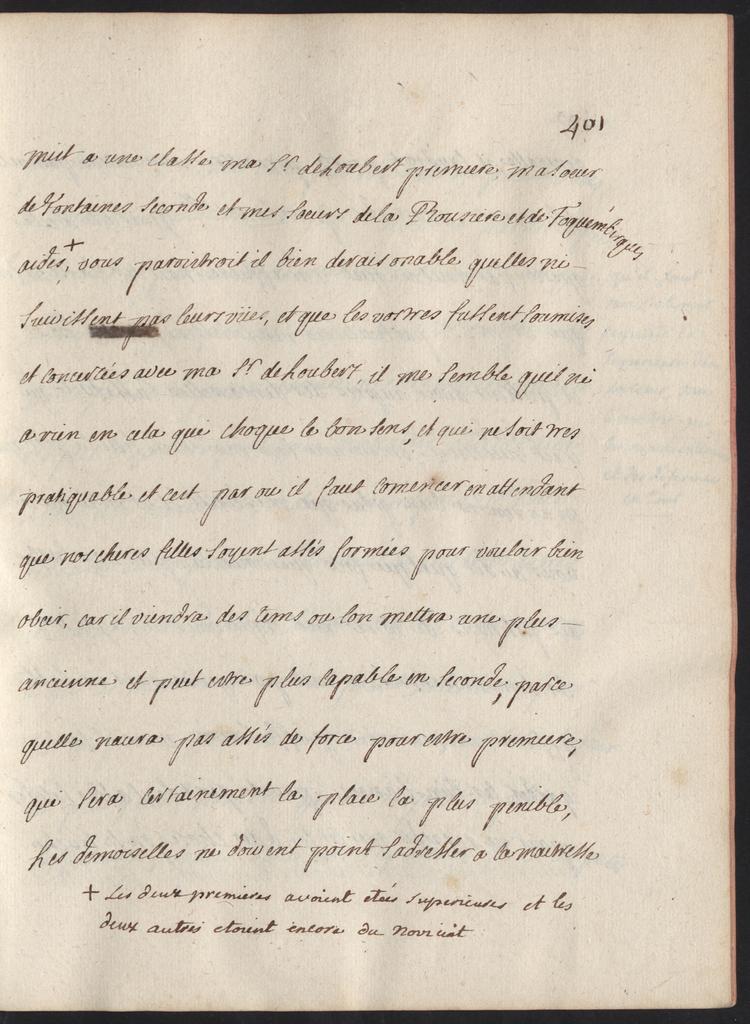 401
mist a une classe ma Sr. de houbert premiere, ma soeur
de fontaines seconde et mes soeurs de la Rousiere et de Foquembergues
aides,+ vous paroistroit il bien deraisonable quelles ni
suivissent pas leurs vües, et que les vostres fussent soumises
et concertées avec ma Sr. de houbert, il me semble quil ni
a rien en cela qui choque le bon sens, et qui ne soit tres
pratiquable et cest par ou il faut comencer en attendant
que nos cheres filles soyent assés formées pour vouloir bien
obeir, car il viendra des tems ou lon mettra une plus
ancienne et peut estre plus capable en seconde, parce
quelle naura pas assés de force pour estre premiere,
qui sera certainement la place la plus penible,
Les demoiselles ne doivent point sadresser a la maitresse
+ Les deux premieres avoient etées superieures et les
deux autres etoient encore du Noviciat